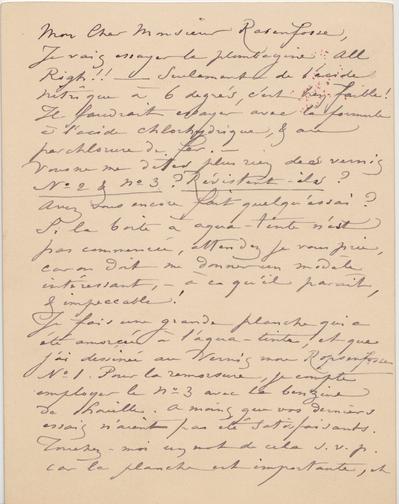 Mon Cher Monsieur Rasenfosse,
Je vais essayer la plombagine All
Righ!! — Seulement de l'acide
nitrique à 6 degrés, c'est bien faible!
Il faudrait essayer avec la formule
à l'acide chlorhydrique, & au
perchlorure de fer. —
Vous ne me dites plus rien des vernis
No 2 & No 3? Résistent-ils?
Avez vous encore fait quelqu'essai?
Si la boite à aqua-tinte n'est
pas commencée, attendez je vous prie,
car on doit me donner un modèle
intéressant, — à ce qu'il parait,
& impeccable.
Je fais une grande planche qui a
été amorcée à l'aqua-tinte, et que
j'ai dessinée au Vernis mou Ropsenfosse
No 1. Pour la remorsure, je compte
employer le No 3 avec la benzine
de houille. A moins que vos derniers
essais n'aient pas été satisfaisants.
Touchez-moi un mot de cela s.v.p.
car la planche est importante, et